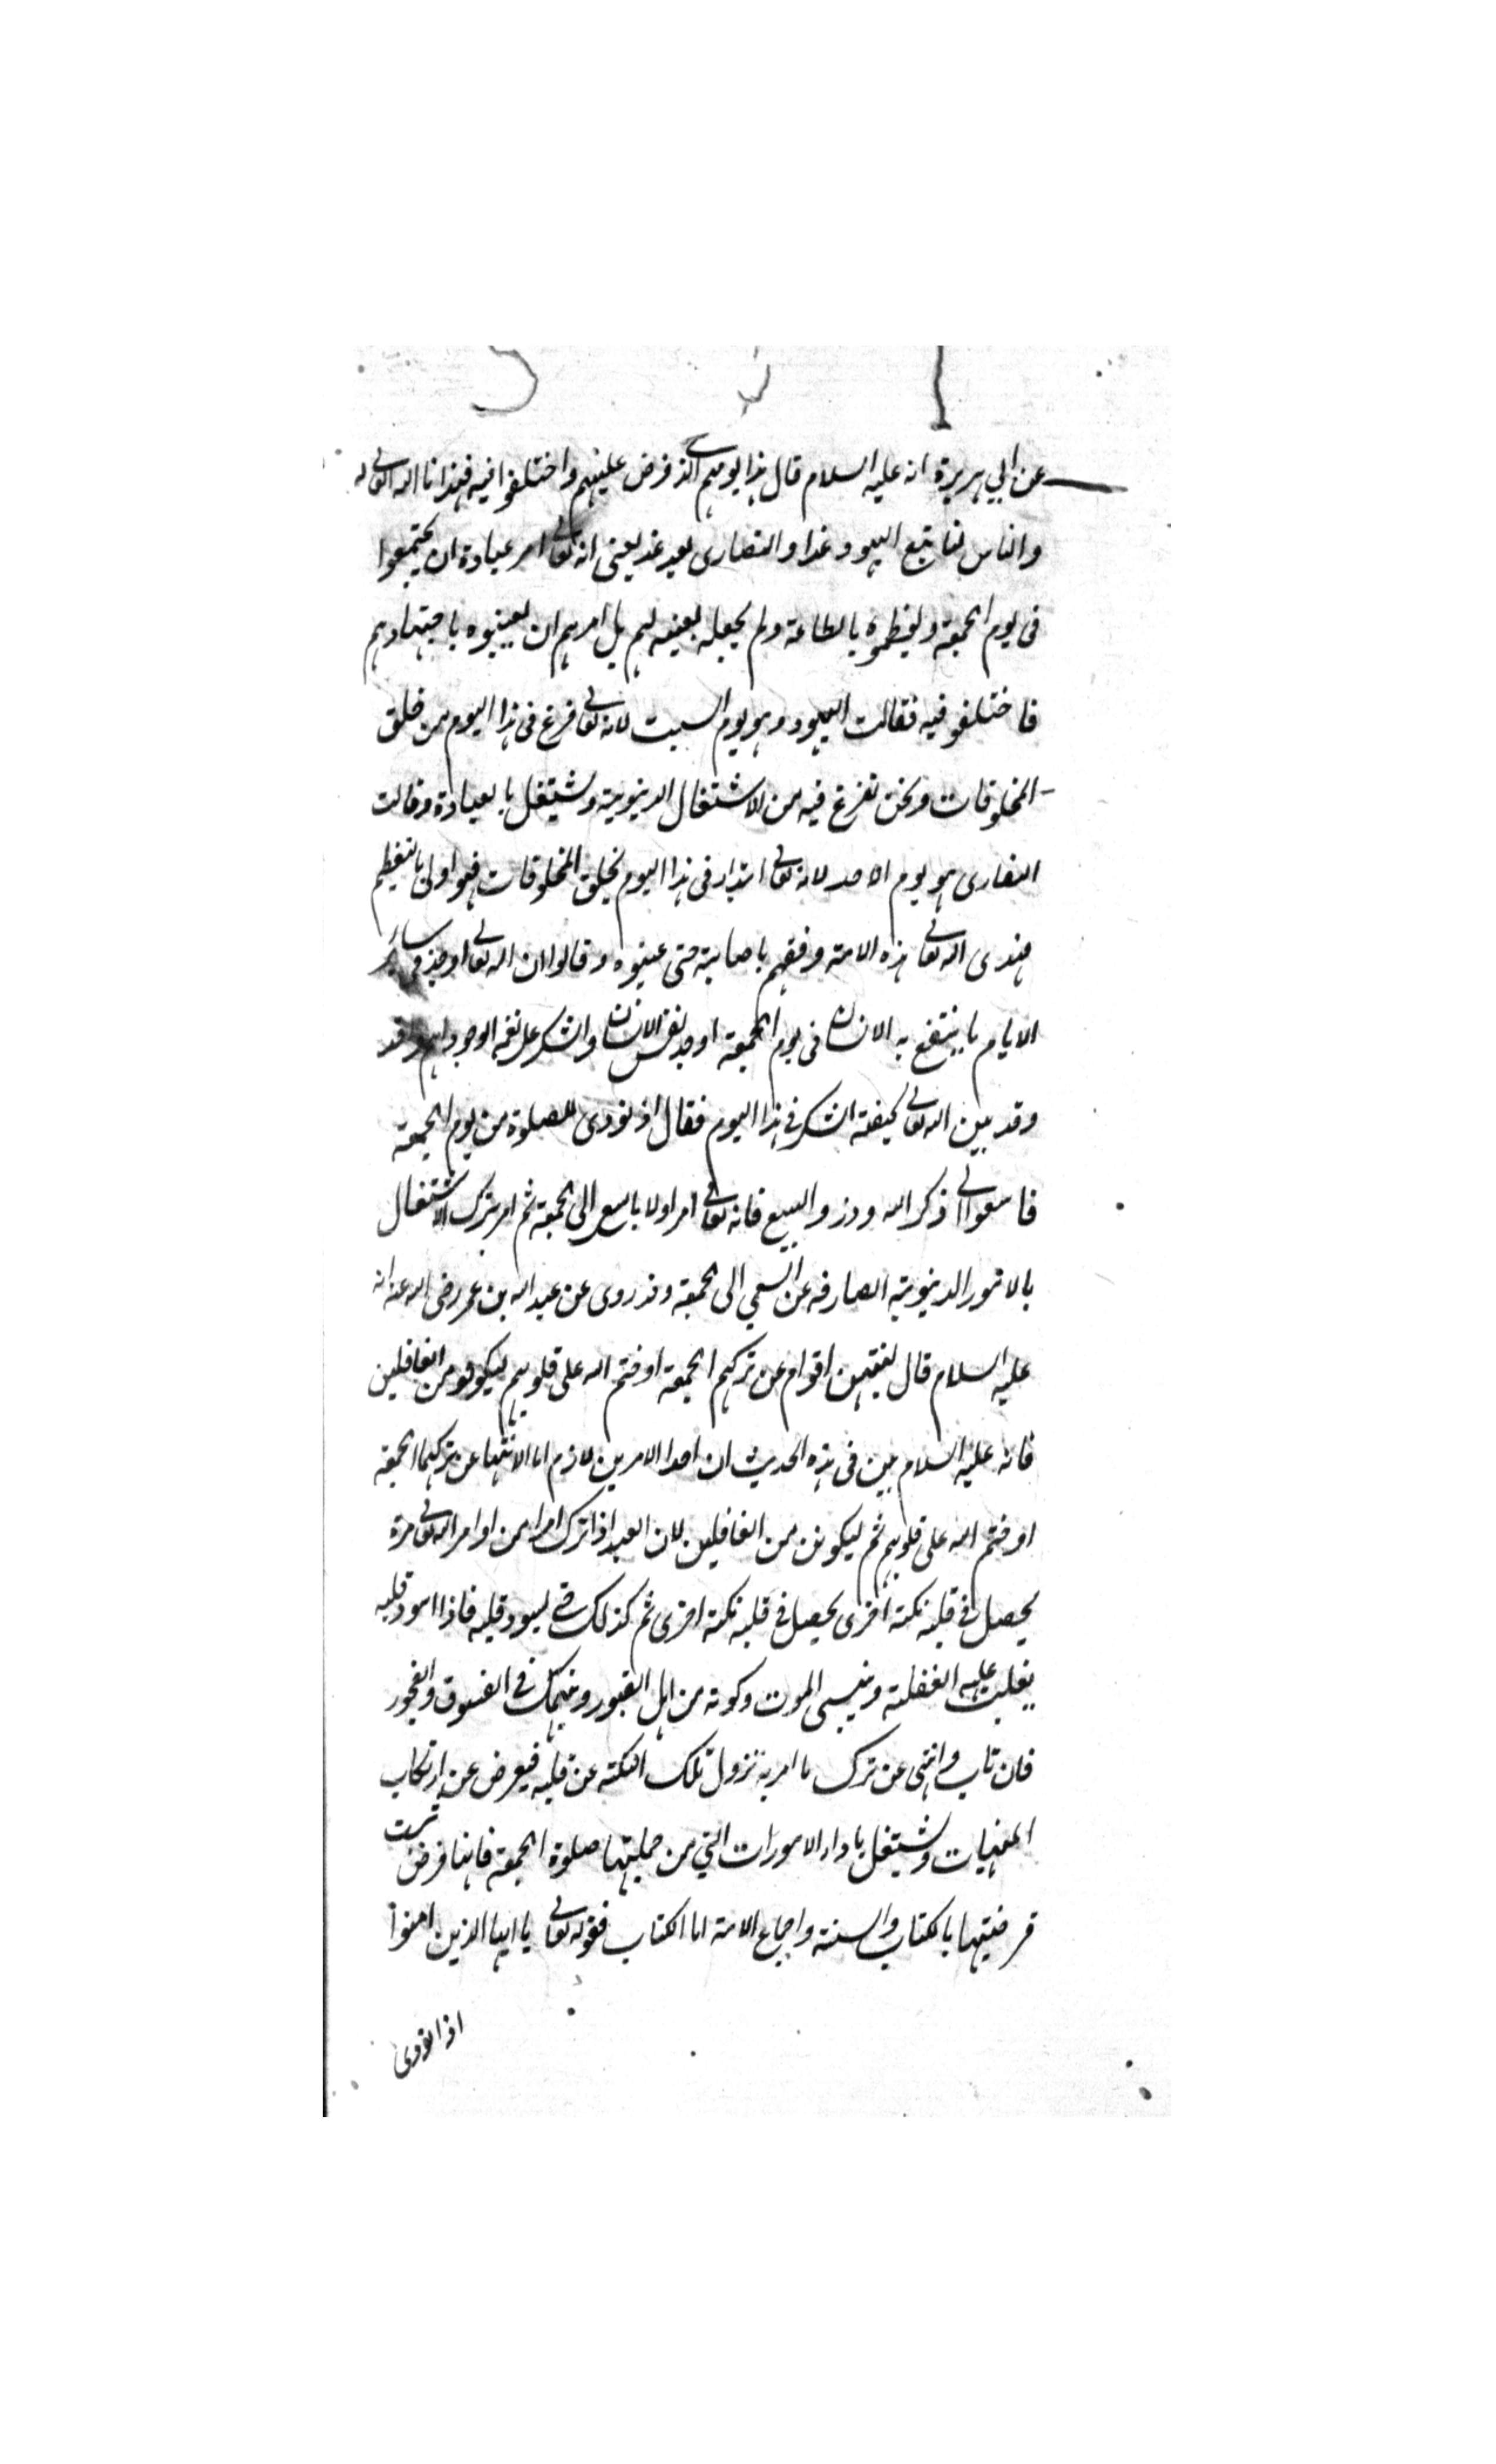 عن ابي هريرة انه عليه السلام قال هذا يومهم الذي فرض عليهم واختلفوا فيه فهدانا الله تعالى له
والناس لنا تبع اليهود غدا والنصارى بعد غد يعنى انه تعالى امر عباده ان يجتمعوا
فى يوم الجمعة ويعظموه بالطاعة ولم يجعله بعينه لهم بل امرهم ان يعينوه باجتهادهم
فاختلفو فيه فقالت اليهود وهو يوم السبت لانه تعالى فرغ فى هذا اليوم من خلق
المخلوقات ونحن نفرغ فيه من الاشتغال الدنيوية ونشتغل بالعبادة وقالت
النصارى هو يوم الاحد لانه تعالى ابتداء فى هذا اليوم بخلق المخلوقات فهو اولى بالتعظيم
فهدى الله تعالى هذه الامة وفقهم باصابته حتى عينوه وقالوا ان الله تعالى اوجد فى سائر
الايام ما ينتفع به الانسان فى يوم الجمعة اوجد نفس الانسان والشكر على نعمة الوجود اهم وقد
وقد بين الله تعالى كيفية الشكر فى هذا اليوم فقال اذ نودى للصلوة من يوم الجمعة
فاسعوا الى ذكر الله وذرو البيع فانه تعالى امر اولا باسعى الى الجمعة ثم امر بترك الاشتغال
بالامور الدنيوية الصارفه عن السعي الى الجمعة وقد روى عن عبد الله بن عمر رضى الله عنه انه
عليه السلام قال لينتهين اقوام عن تركهم الجمعة او ختم الله على قلوبهم ليكونو من الغافلين
فانه عليه السلام بين فى هذه الحديث ان احدا الامرين لازم اما الانتها عن تركهما الجمعة
او ختم الله على قلوبهم ثم ليكونن من الغافلين لان العبد اذا ترك امرا من اوامر الله تعالى مرة
يحصل فى قلبه نكتة اخرى يحصل فى قلبه نكتة اخرى ثم كذلك حتى يسود قلبه فاذا اسود قلبه
يغلبت عليه الغفلة وينسى الموت وكونه من اهل القبور وينهمك فى الفسوق والفجور
فان تاب وانتهى عن ترك ما امر به تزول تلك النكتة عن قلبه فيعرض عن ارتكاب
المنهيات ويشتغل باداء الامورات التي من جملتها صلوة الجمعة فانها فرض ثبت
فرضيتها بالكتاب والسنة واجماع الامة اما الكتاب فقوله تعالى يا ايها الذين امنوا
اذا نودى